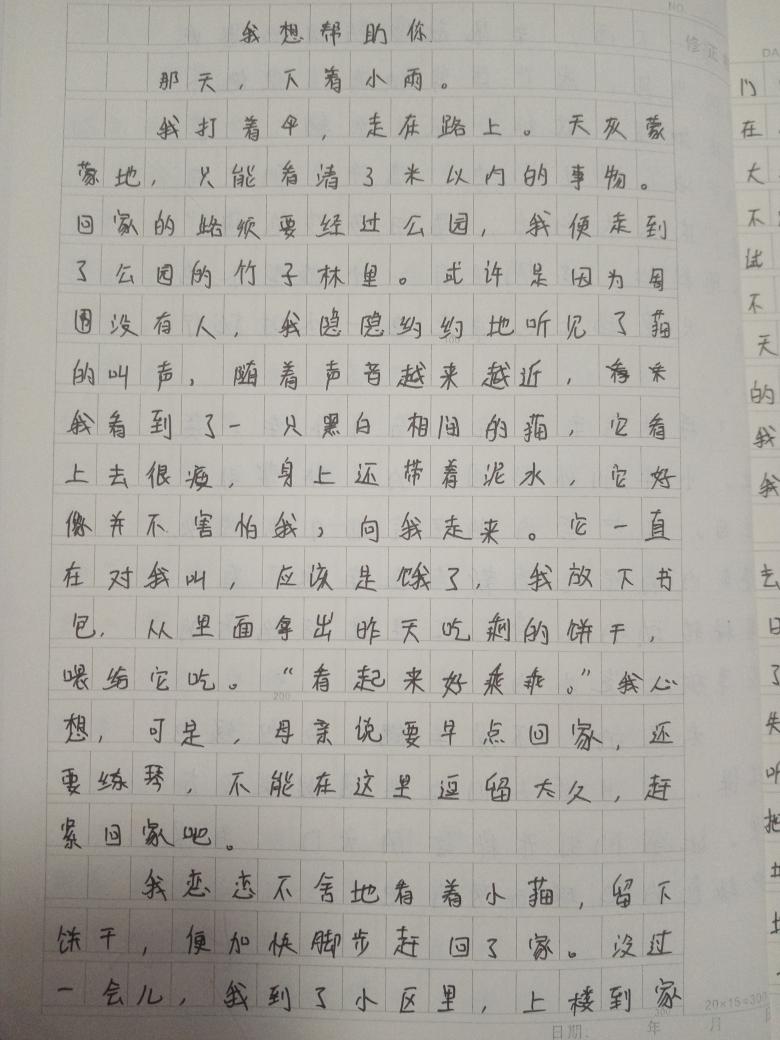 我想帮助你
那天，下着小雨。
我打着伞，走在路上。天灰蒙
蒙地，只能看清了米以内的事物。
回家的路须要经过公园，我便走到
了公园的竹子林里。或许是因为周
围没有人，我隐隐约约地听见了猫
的叫声，随着声音越来越近，看来
我看到了一只黑白相间的猫，它看
上去很瘦，身上还带着泥水，它好
像并不害怕我，向我走来。它一直
在对我叫，应该是饿了，我放下书
包，从里面拿出昨天吃剩的饼干，
喂给它吃。“看起来好乖乖。”我心
想，可是，母亲说要早点回家，还
要练琴，不能在这里逗留太久，赶
紧回家吧。
我恋恋不舍地看着小猫，留下
饼干，便加快脚步赶回了家。没过
一会儿，我到了小区里，上楼到家
NO.
修正
100
200
300
20×15=300
日期. 年 月
DA
们
在
大
不
试
不
天
的
我
我
去
日
了
失
听
把